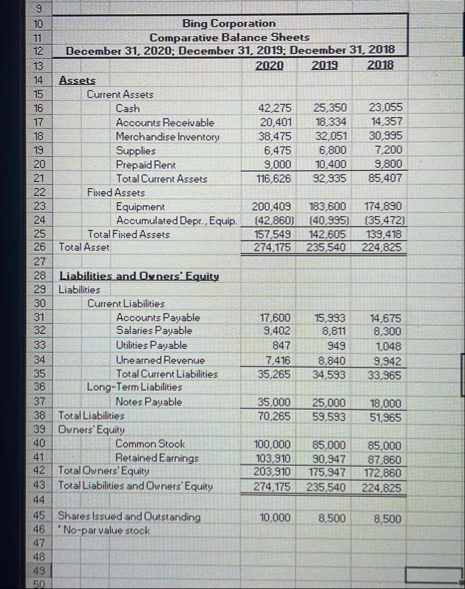 9
10 Bing Corporation
11 Comparative Balance Sheets
12 December 31, 2020; December 31, 2019; December 31, 2018
13 2020 2019 2018
14 Assets
15 Current Assets
16 Cash 42,275 25,350 23,055
17 Accounts Receivable 20,401 18,334 14,357
18 Merchandise Inventory 38,475 32,051 30,995
19 Supplies 6,475 6,800 7,200
20 Prepaid Rent 9,000 10,400 9,800
21 Total Current Assets 116,626 92,935 85,407
22 Fixed Assets
23 Equipment 200,409 183,600 174,890
24 Accumulated Depr., Equip. (42,860) (40,995) (35,472)
25 Total Fixed Assets 157,549 142,605 139,418
26 Total Asset 274,175 235,540 224,825
27
28 Liabilities and Owners' Equity
29 Liabilities
30 Current Liabilities
31 Accounts Payable 17,600 15,993 14,675
32 Salaries Payable 9,402 8,811 8,300
33 Utilities Payable 847 949 1,048
34 Unearned Revenue 7,416 8,840 9,942
35 Total Current Liabilities 35,265 34,593 33,965
36 Long-Term Liabilities
37 Notes Payable 35,000 25,000 18,000
38 Total Liabilities 70,265 59,593 51,965
39 Owners' Equity
40 Common Stock 100,000 85,000 85,000
41 Retained Earnings 103,910 90,947 87,860
42 Total Owners' Equity 203,910 175,947 172,860
43 Total Liabilities and Owners' Equity 274,175 235,540 224,825
44
45 Shares Issued and Outstanding 10,000 8,500 8,500
46 * No-par value stock
47
48
49
50